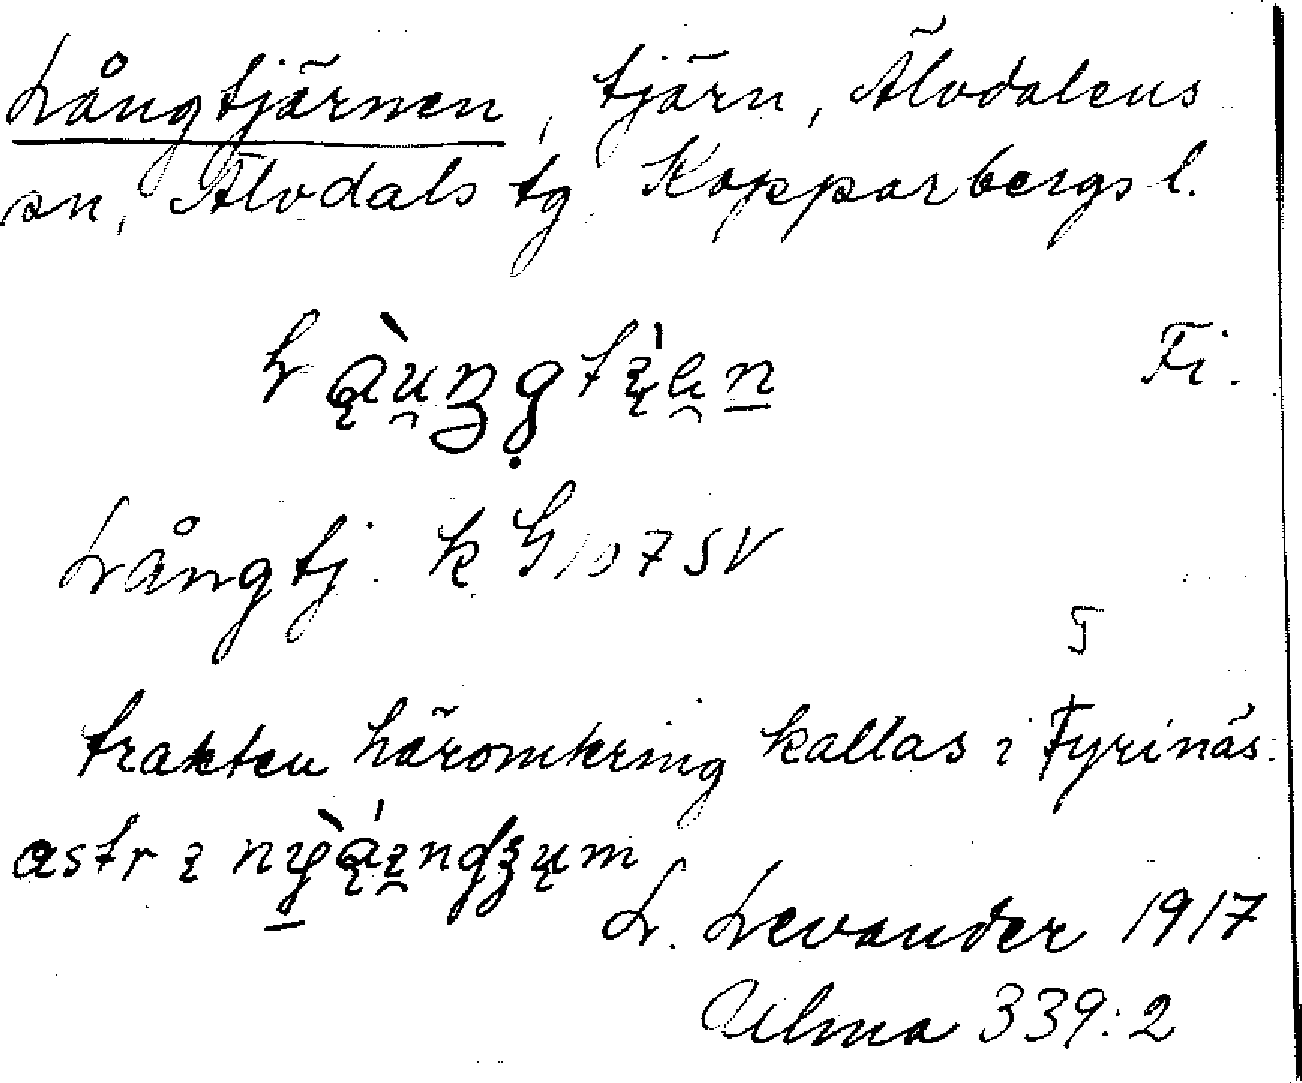 Långtjärnen, tjärn, Älvdalens
sn, Älvdals tg Kopparbergs l.
Fi.
Långtj. k G 107 SV
5
trakten häromkring kallas i Fyrinäs:
astr ı
L. Levander 1917
Ulma 339:2